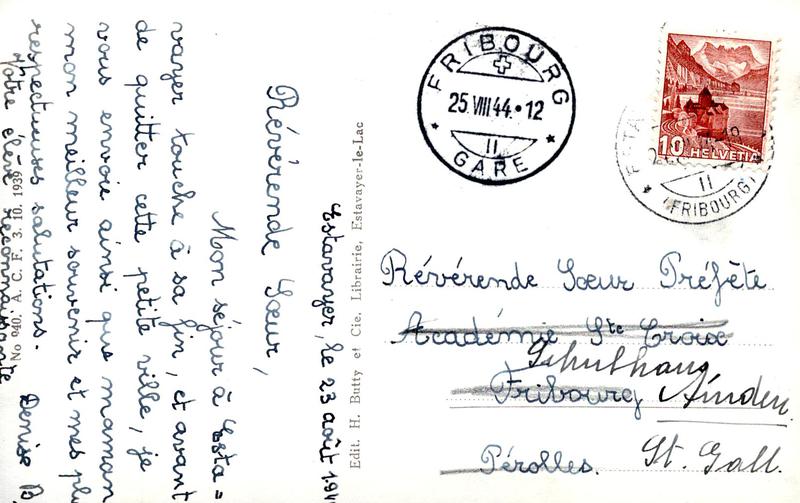 Estavayer, le 23 août 19
Révérende Sœur,
Mon séjour à Esta=
vayer touche à sa fin, et avant
de quitter cette petite ville, je
vous envoie ainsi que maman
mon meilleur souvenir et mes plus
respectueuses salutations.
Votre élève reconnaissante
Denise B.
No 940. A. C. F. 3. 10. 1939
Edit. H. Butty et Cie, Librairie, Estavayer-le-Lac
FRIBOURG
25.VIII.44.•12
II
GARE
10 HELVETIA
ESTA
II
(FRIBOURG)
Révérende Sœur Préfète
Académie Ste Croix
Schulhaus
Fribourg Amden
Pérolles. St. Gall.